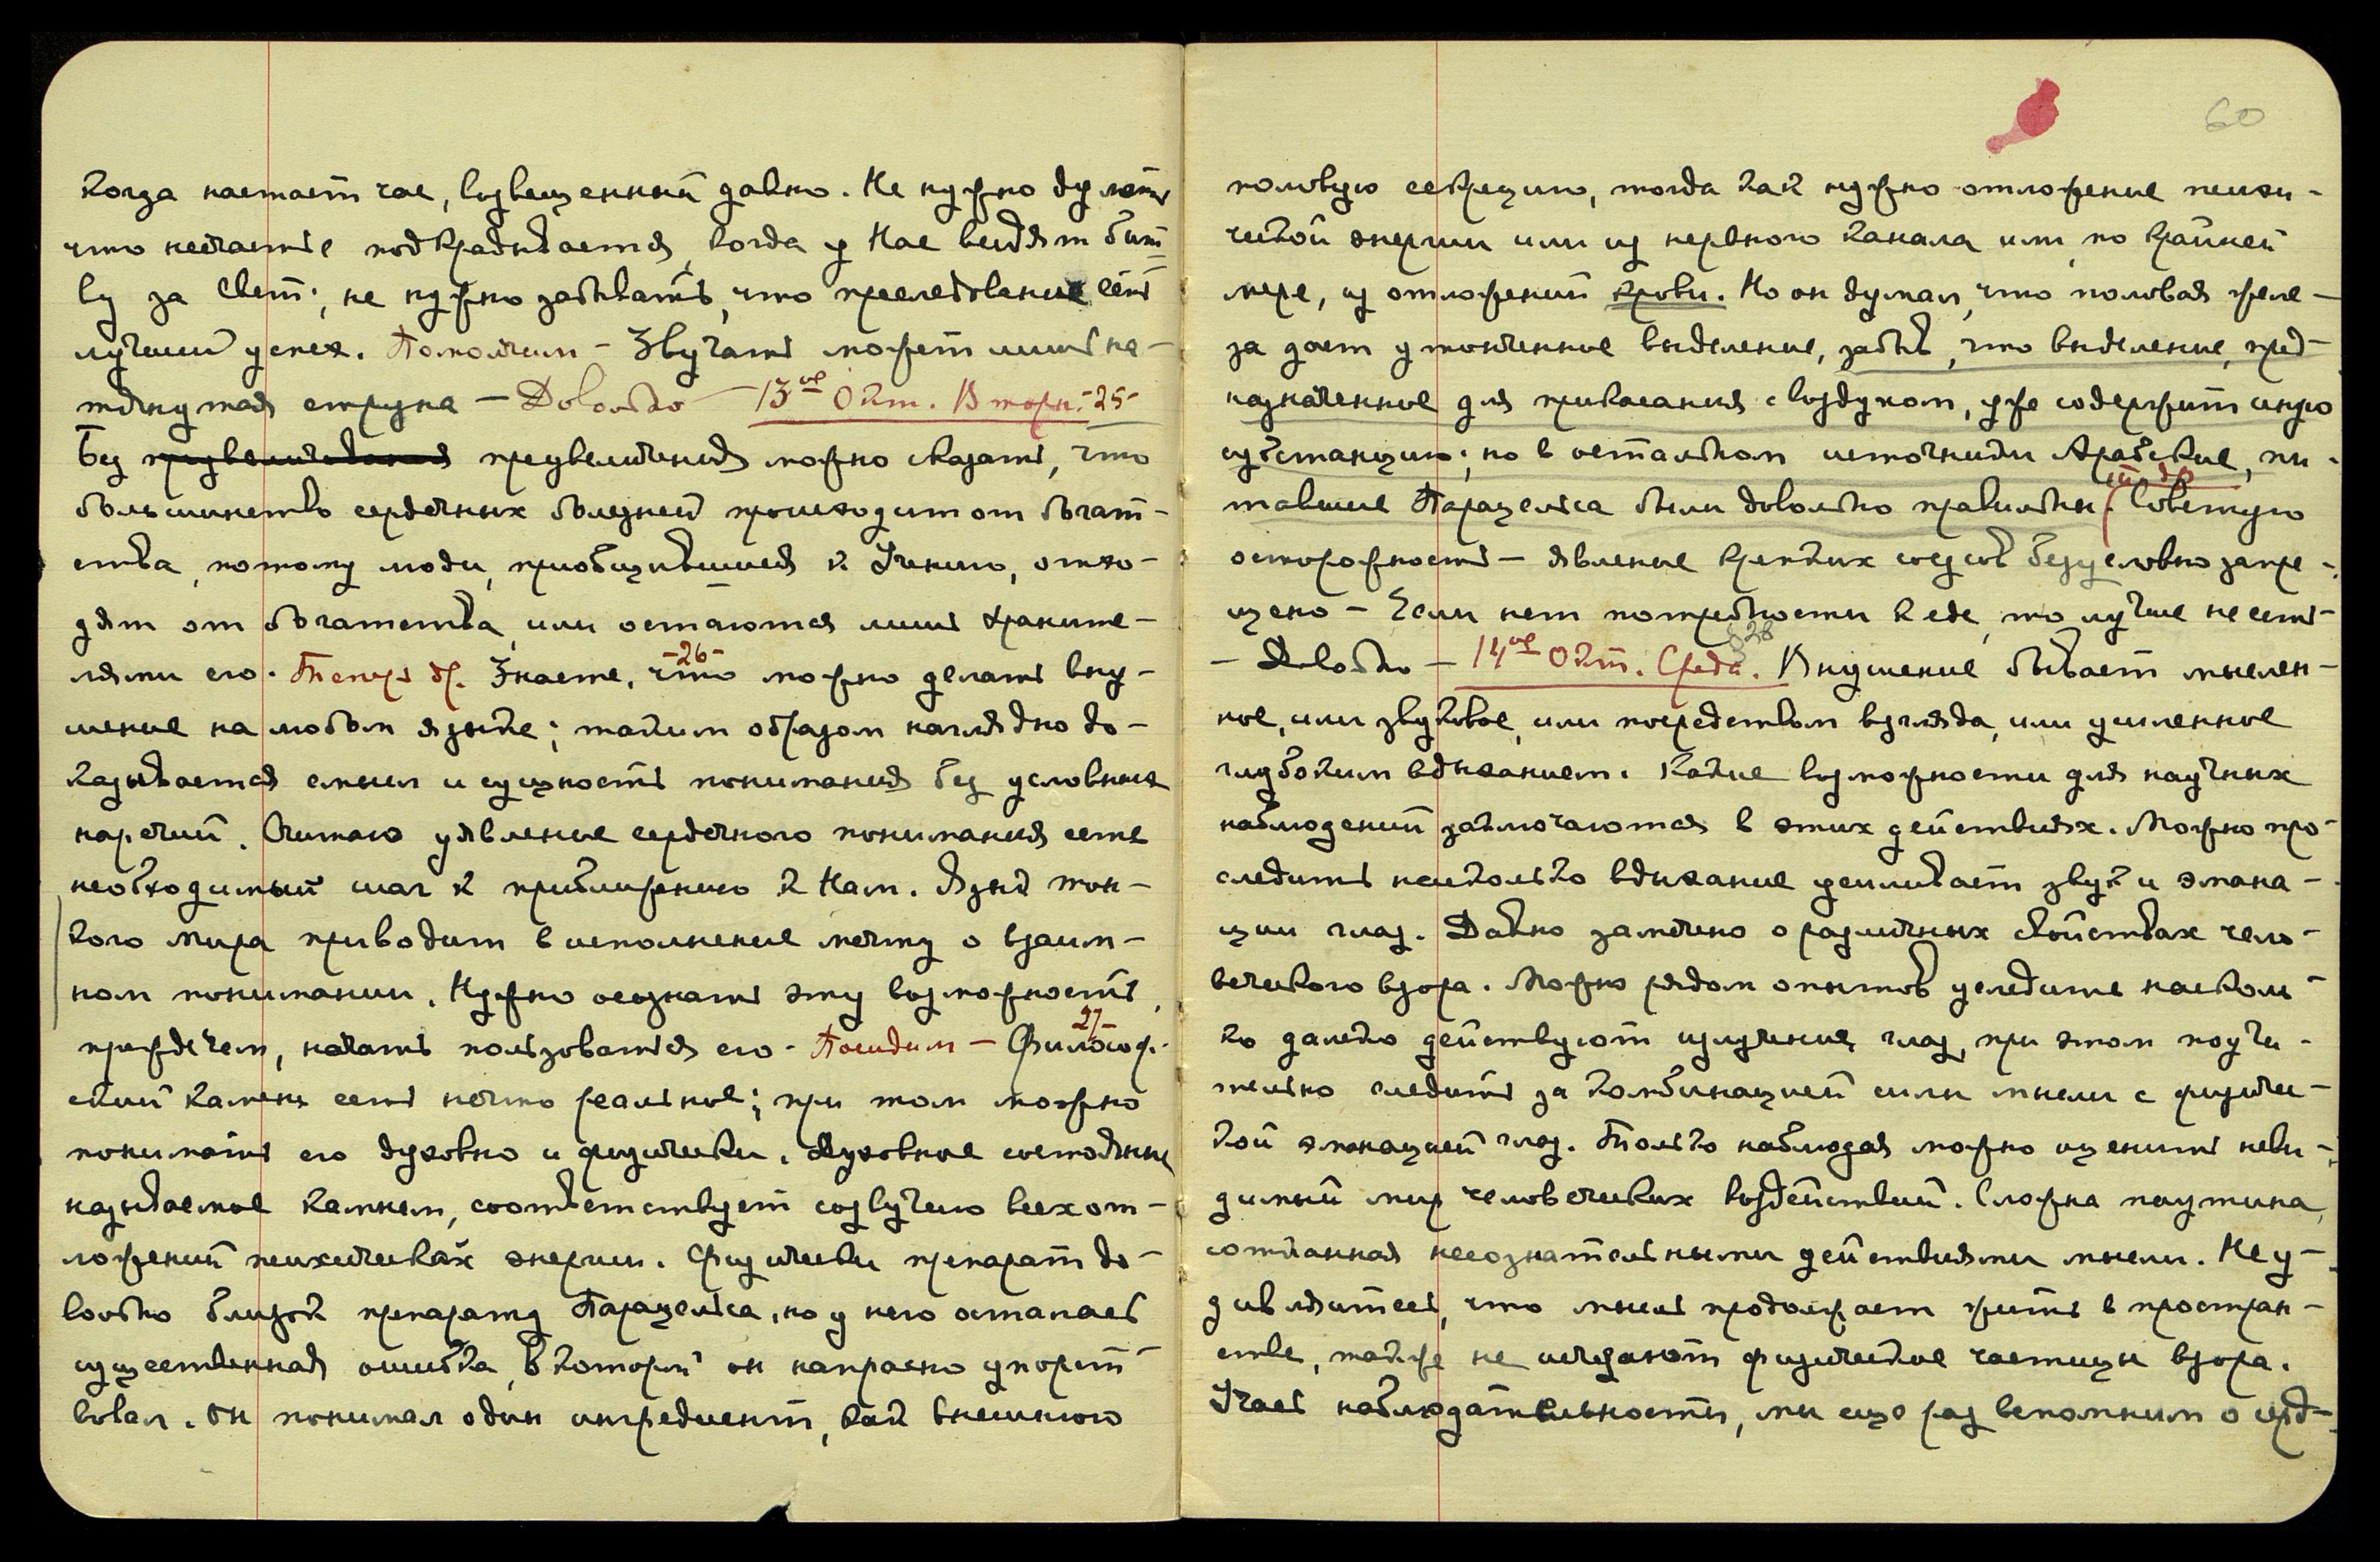 когда настает час, возвещенный давно. Не нужно думать
что несчастье подкрадывается, когда у Нас видят бит-
ву за Свет; не нужно забывать, что преследование есть
лучший успех. Помолчим – Звучать может лишь на-
тянутая струна – Довольно – 13ое Окт. Вторн. -25-
Без преувеличения можно сказать, что
большинство сердечных болезней происходит от богат-
ства, потому люди, приобщившиеся к Учению, отхо-
дят от богатства, или остаются лишь храните-
лями его. Теперь др. -26- Знаете, что можно делать вну-
шение на любом языке; таким образом наглядно до-
казывается смысл и сущность понимания без условных
наречий. Считаю уявление сердечного понимания есть
необходимый шаг к приближению к Нам. Язык тон-
кого мира приводит в исполнение мечту о взаим-
ном понимании. Нужно осознать эту возможность,
прежде чем, начать пользоваться его. Посидим – 27- Философ.
ский камень есть нечто реальное; при том можно
понимать его духовно и физически. Духовное состояние
называемое камнем, соответствует созвучию всех от-
ложений психических энергии. Физически препарат до-
вольно близок препарату Парацельса, но у него осталась
существенная ошибка, в которой он напрасно упорст-
вовал. Он понимал один ингредиент, как внешнюю
60
половую секрецию, тогда как нужно отложение психи-
ческой энергии или из нервного канала или, по крайней
мере, из отложений крови. Но он думал, что половая желе-
за дает утонченное выделение, забыв, что выделение, пред-
назначенное для прикасания с воздухом, уже содержит иную
субстанцию; но в остальном источники Арабские, пи-
тавшие Парацельса были довольно правильны. Советую
осторожность – явление крепких соусов безусловно запре-
щено – Если нет потребности к еде, то лучше не есть –
– Довольно – 14ое Окт. Среда. 28 Внушение бывает мыслен-
ное, или звуковое, или посредством взгляда, или усиленное
глубоким вдыханием. Какие возможности для научных
наблюдений заключаются в этих действиях. Можно про-
следить насколько вдыхание усиливает звук и эмана-
ции глаз. Давно замечено о различных свойствах чело-
веческого взора. Можно рядом опытов уследить насколь-
ко далеко действуют излучения глаз, при этом поучи-
тельно следить за комбинацией силы мысли с физичес-
кой эманацией глаз. Только наблюдая можно оценить неви-
димый мир человеческих воздействий. Сложна паутина,
сотканная несознательными действиями мысли. Не у-
дивляйтесь, что мысль продолжает жить в простран-
стве, также не исчезают физические частицы взора.
Учась наблюдательности, мы еще раз вспомним о серд-